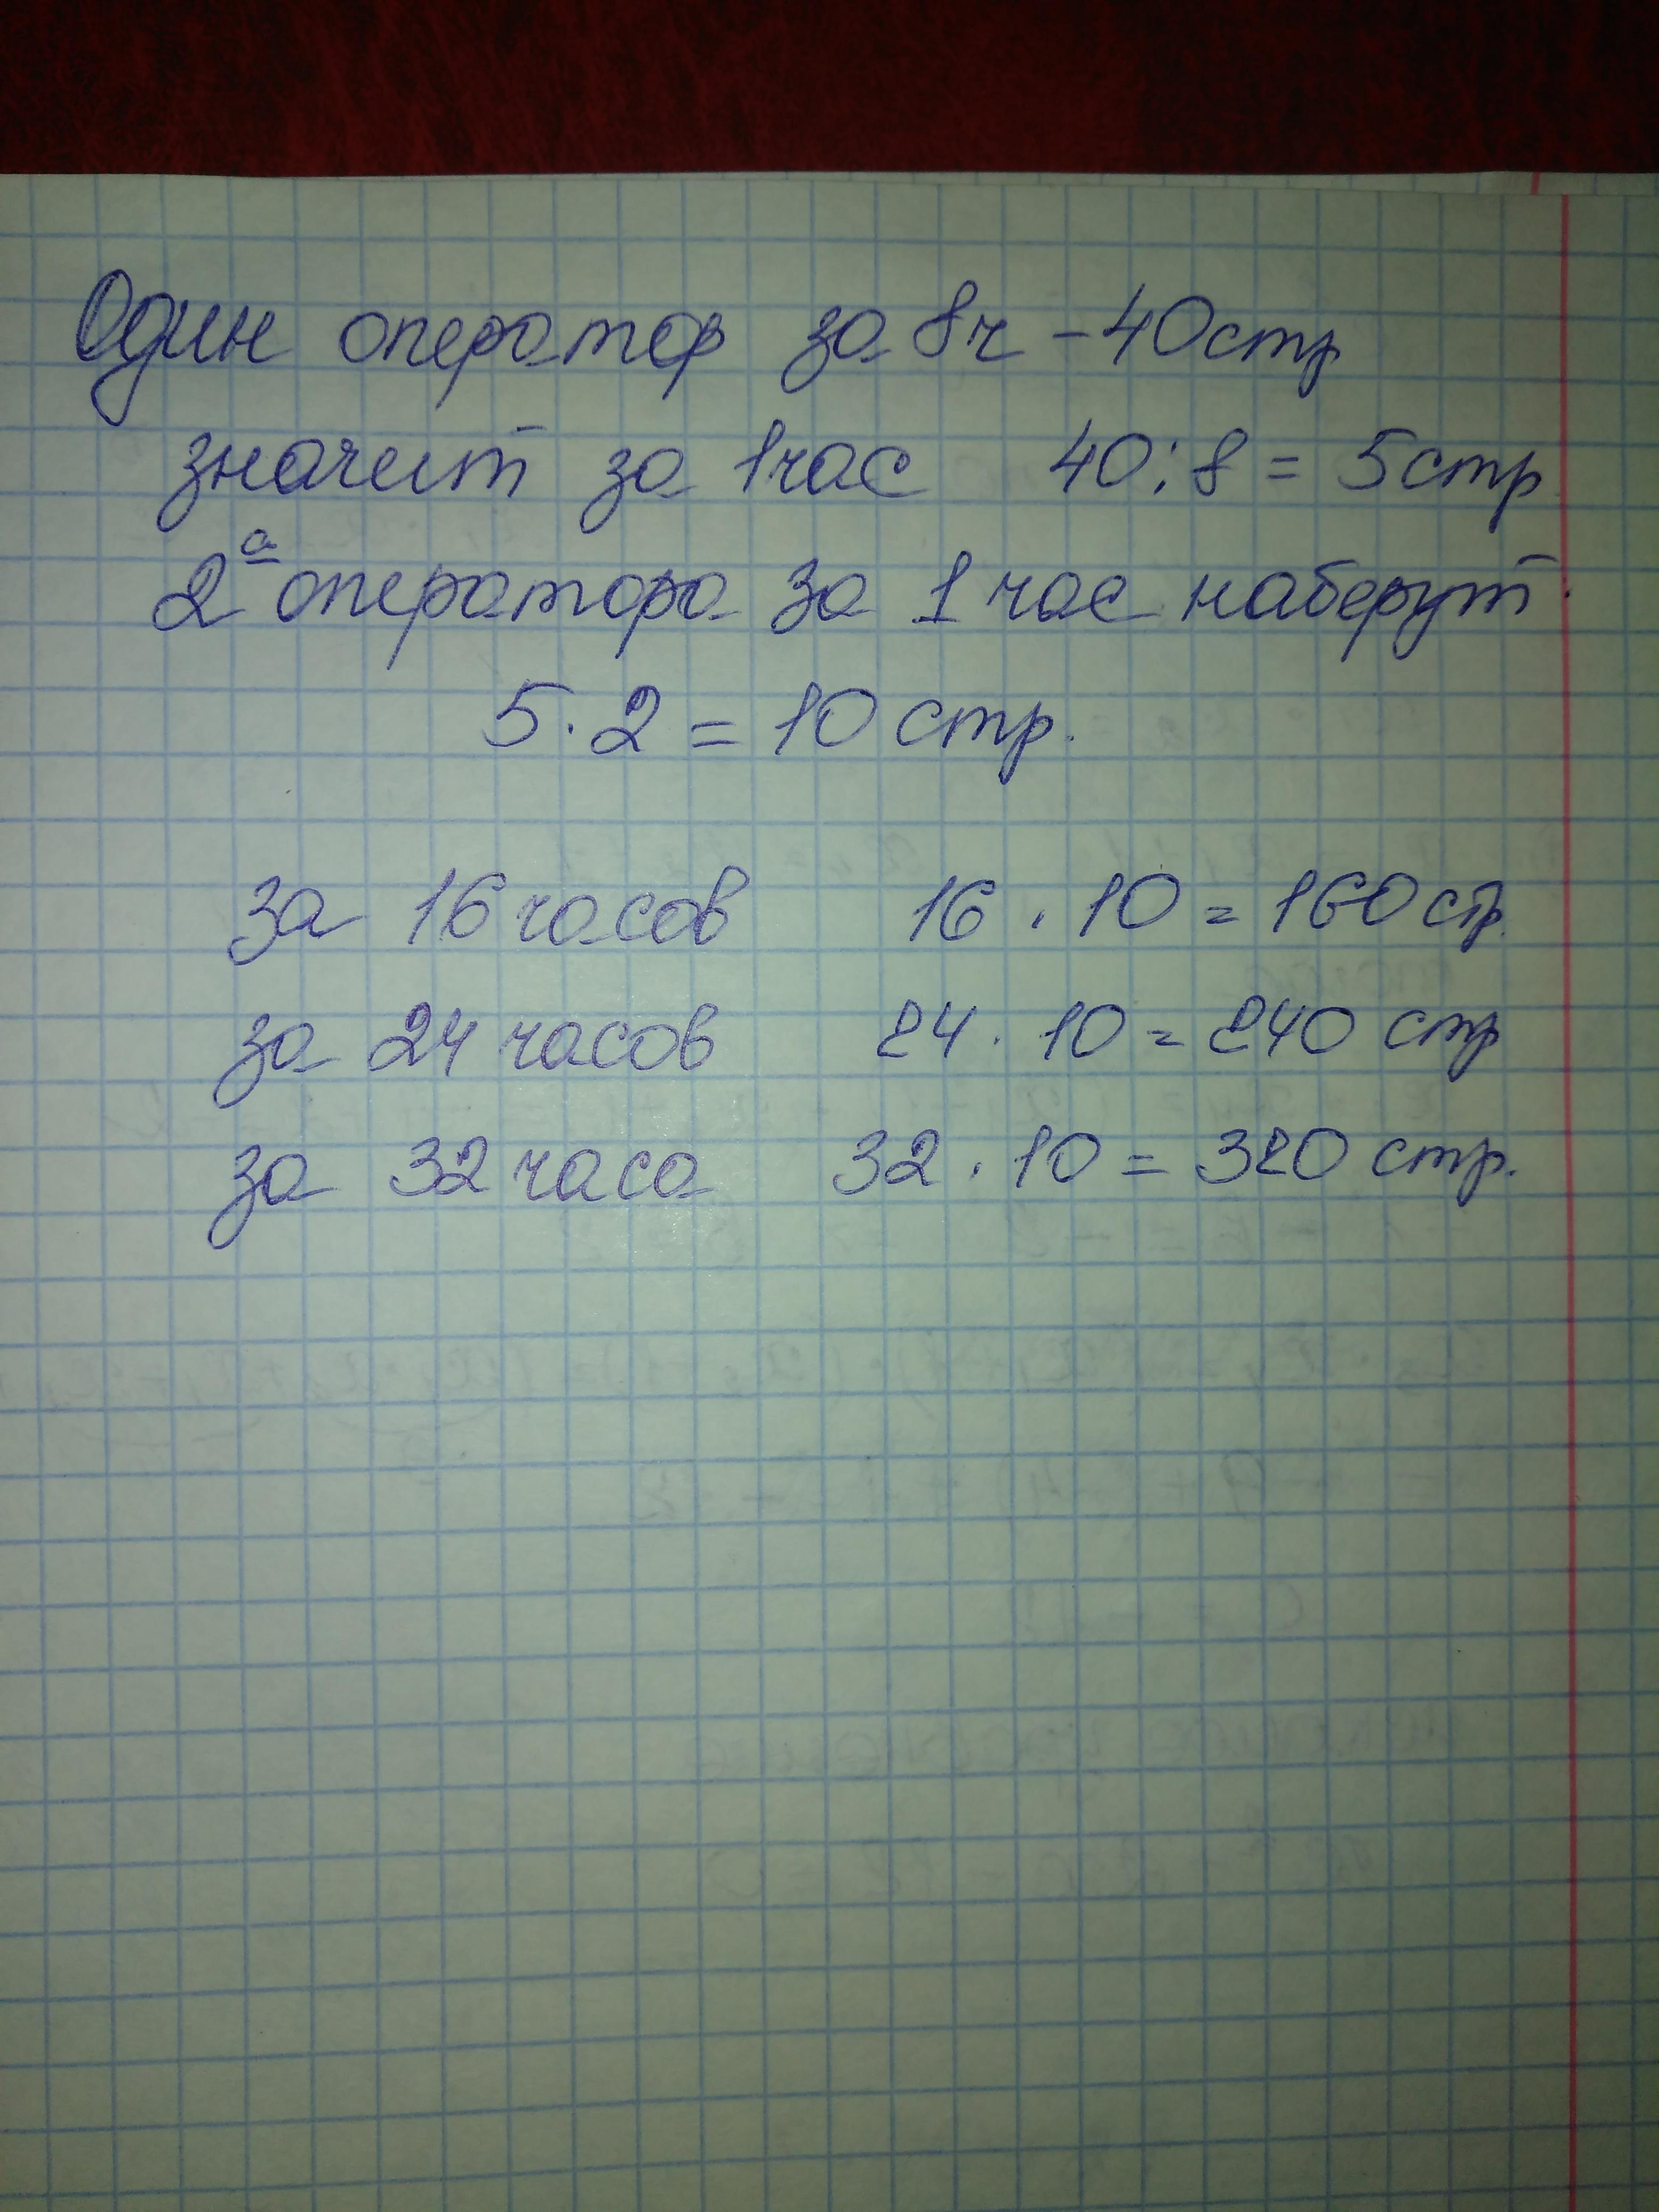 Один оператор за 8ч - 40стр
значит за 1час 40:8 = 5стр
2а оператора за 1 час наберут
5·2 = 10 стр.
за 16 часов 16·10 = 160 стр.
за 24 часов 24·10 = 240 стр
за 32 часа 32·10 = 320 стр.